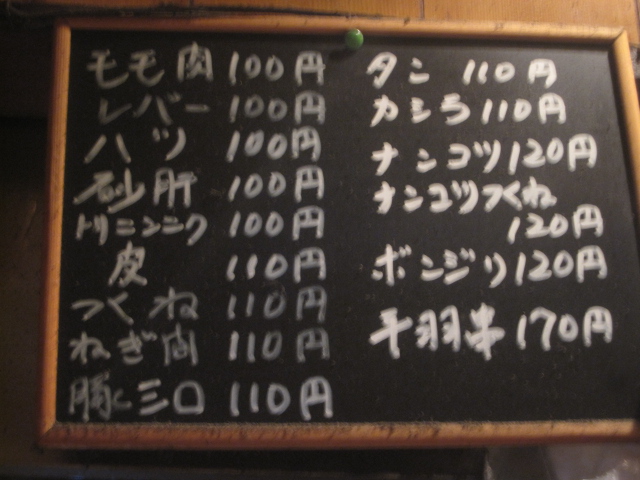 モモ肉 100円
レバー 100円
ハツ 100円
砂肝 100円
トリニンニク 100円
皮 110円
つくね 110円
ねぎ肉 110円
豚シロ 110円
タン 110円
カシラ 110円
ナンコツ 120円
ナンコツつくね
120円
ボンジリ 120円
手羽串 170円